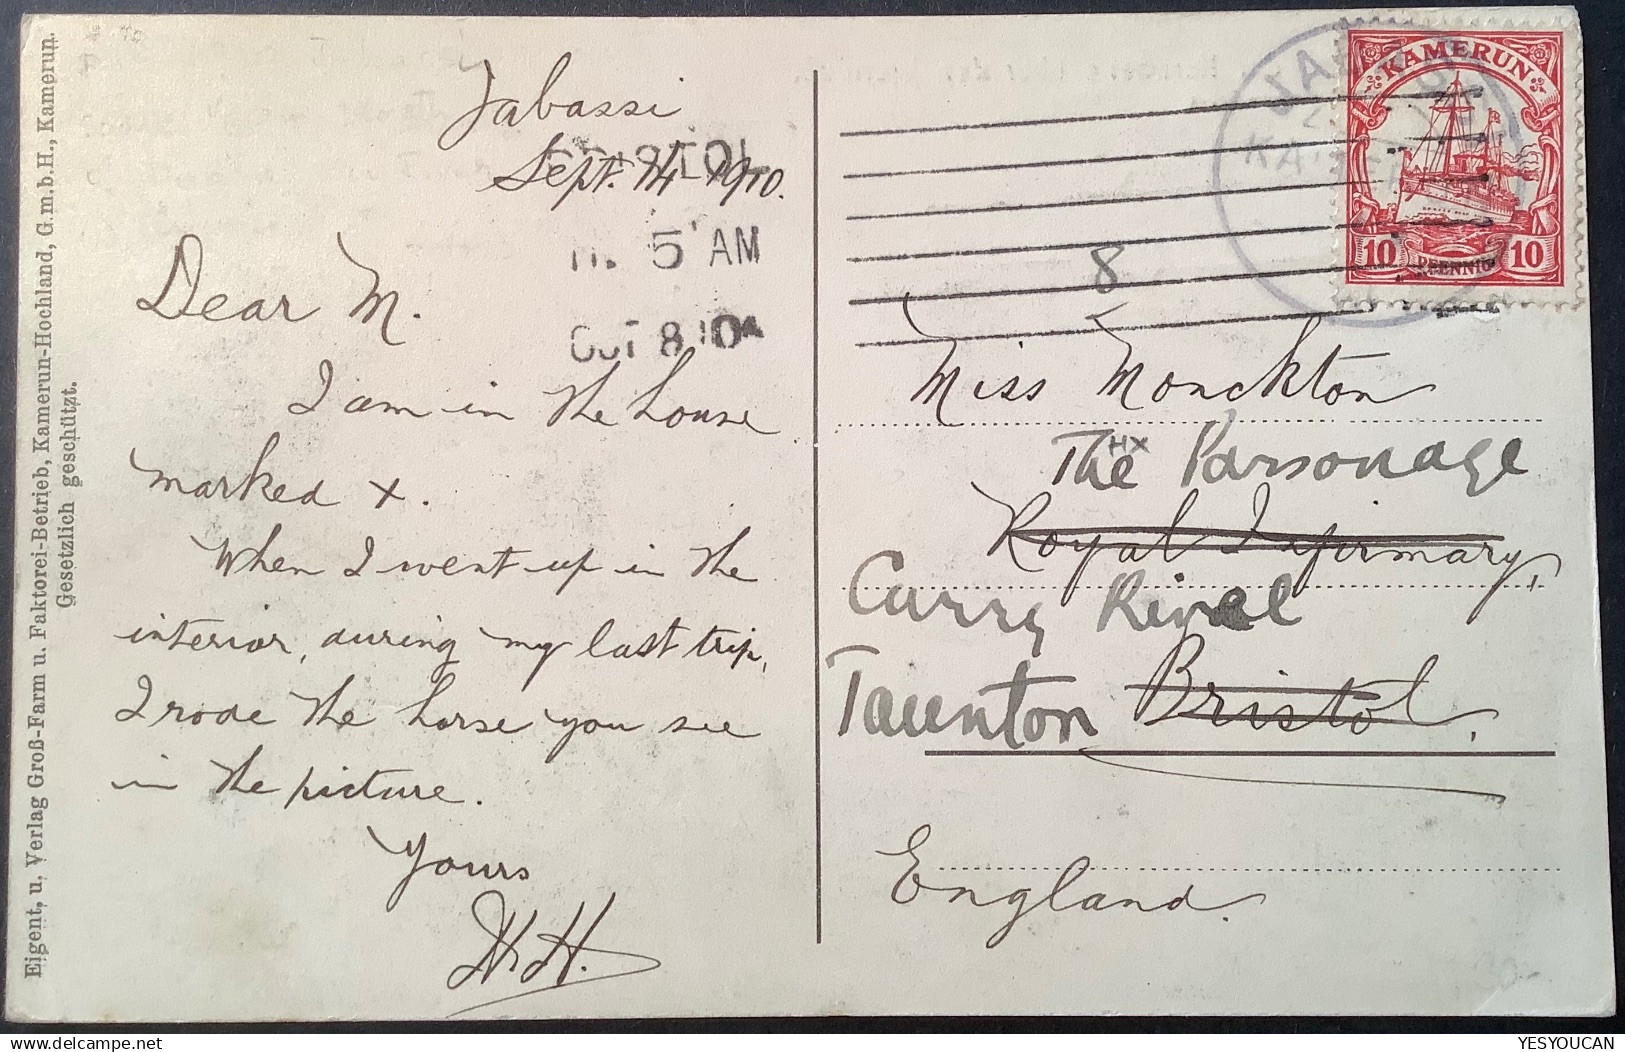 Eigent. u. Verlag Groß-Farm u. Faktorei-Betrieb, Kamerun-Hochland, G.m.b.H., Kamerun.
Gesetzlich geschützt.
Jabassi
Sept. 14 1910.
BRISTOL
5 AM
OCT 8 10
Dear M.
I am in the house
marked x.
When I went up in the
interior, during my last trip,
I rode the horse you see
in the picture.
Yours
KAMERUN
10 PFENNIG 10
8
Miss Monckton
The Parsonage
HX
Royal Infirmary,
Curry Rivel
Taunton Bristol.
England.
30-
YESYOUCAN